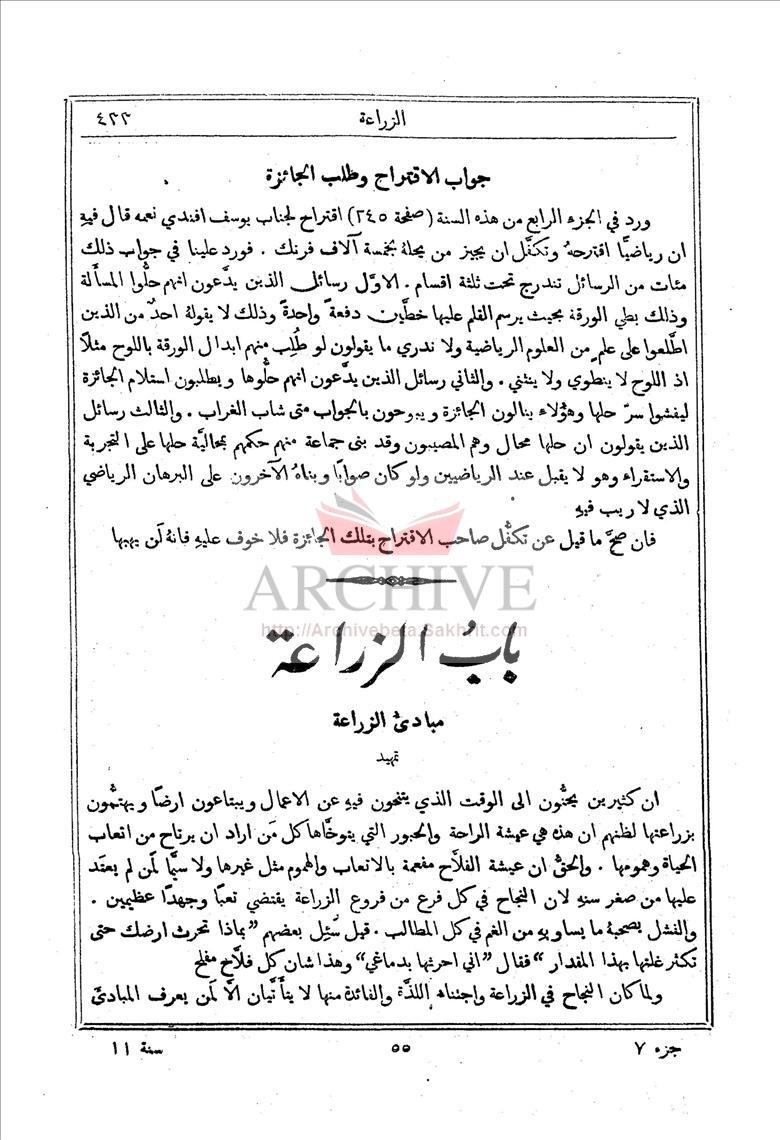 الزراعة ٤٣٣
جواب الاقتراح وطلب الجائزة
ورد في الجزء الرابع من هذه السنة (صفحة ٢٤٥) اقتراح لجناب يوسف افندي نعمه قال فيهِ
ان رياضيًّا اقترحهُ وتكفَّل ان يجيز من يحلهُ بخمسة آلاف فرنك . فورد علينا في جواب ذلك
مئات من الرسائل تندرج تحت ثلثة اقسام . الاوَّل رسائل الذين يدَّعون انهم حلُّوا المسألة
وذلك بطي الورقة بحيث يرسم القلم عليها خطَّين دفعةً واحدةً وذلك لا يقولهُ احدٌ من الذين
اطَّلعوا على علمٍ من العلوم الرياضية ولا ندري ما يقولون لو طُلِب منهم ابدال الورقة باللوح مثلًا
اذ اللوح لا ينطوي ولا ينثني . والثاني رسائل الذين يدَّعون انهم حلُّوها ويطلبون استلام الجائزة
ليفشوا سرَّ حلها وهؤلاء ينالون الجائزة ويبوحون بالجواب متى شاب الغراب . والثالث رسائل
الذين يقولون ان حلها محال وهم المصيبون وقد بنى جماعة منهم حكمهم بمحاليَّة حلها على التجربة
والاستقراء وهو لا يقبل عند الرياضيين ولو كان صوابًا وبناهُ الآخرون على البرهان الرياضي
الذي لا ريب فيهِ
فان صحَّ ما قيل عن تكفُّل صاحب الاقتراح بتلك الجائزة فلا خوف عليهِ فانهُ لَن يهبها
ARCHIVE
http://Archivebeta.Sakhrit.com
بابُ الزراعة
مبادئُ الزراعة
تمهيد
ان كثيرين يحنُّون الى الوقت الذي يتنحَّون فيهِ عن الاعمال ويبتاعون ارضًا ويهتمُّون
بزراعتها لظنهم ان هذه هي عيشة الراحة والحبور التي يتوخَّاها كل مَن اراد ان يرتاح من اتعاب
الحياة وهمومها . والحقُّ ان عيشة الفلَّاح مفعمة بالاتعاب والهموم مثل غيرها ولا سيَّما لمن لم يعتد
عليها من صغر سنهِ لان النجاح في كل فرع من فروع الزراعة يقتضي تعبًا وجهدًا عظيمين .
والفشل يصحبهُ ما يساويهِ من الغم في كل المطالب . قيل سُئِل بعضهم "بماذا تحرث ارضك حتى
تكثر غلتها بهذا المقدار" فقال "اني احرثها بدماغي" وهذا شان كل فلَّاح مفلح
ولما كان النجاح في الزراعة واجتناه اللذَّة والفائدة منها لا يتأتَّيان الَّا لمن يعرف المبادئَ
جزء ٧ ٥٥ سنة ١١